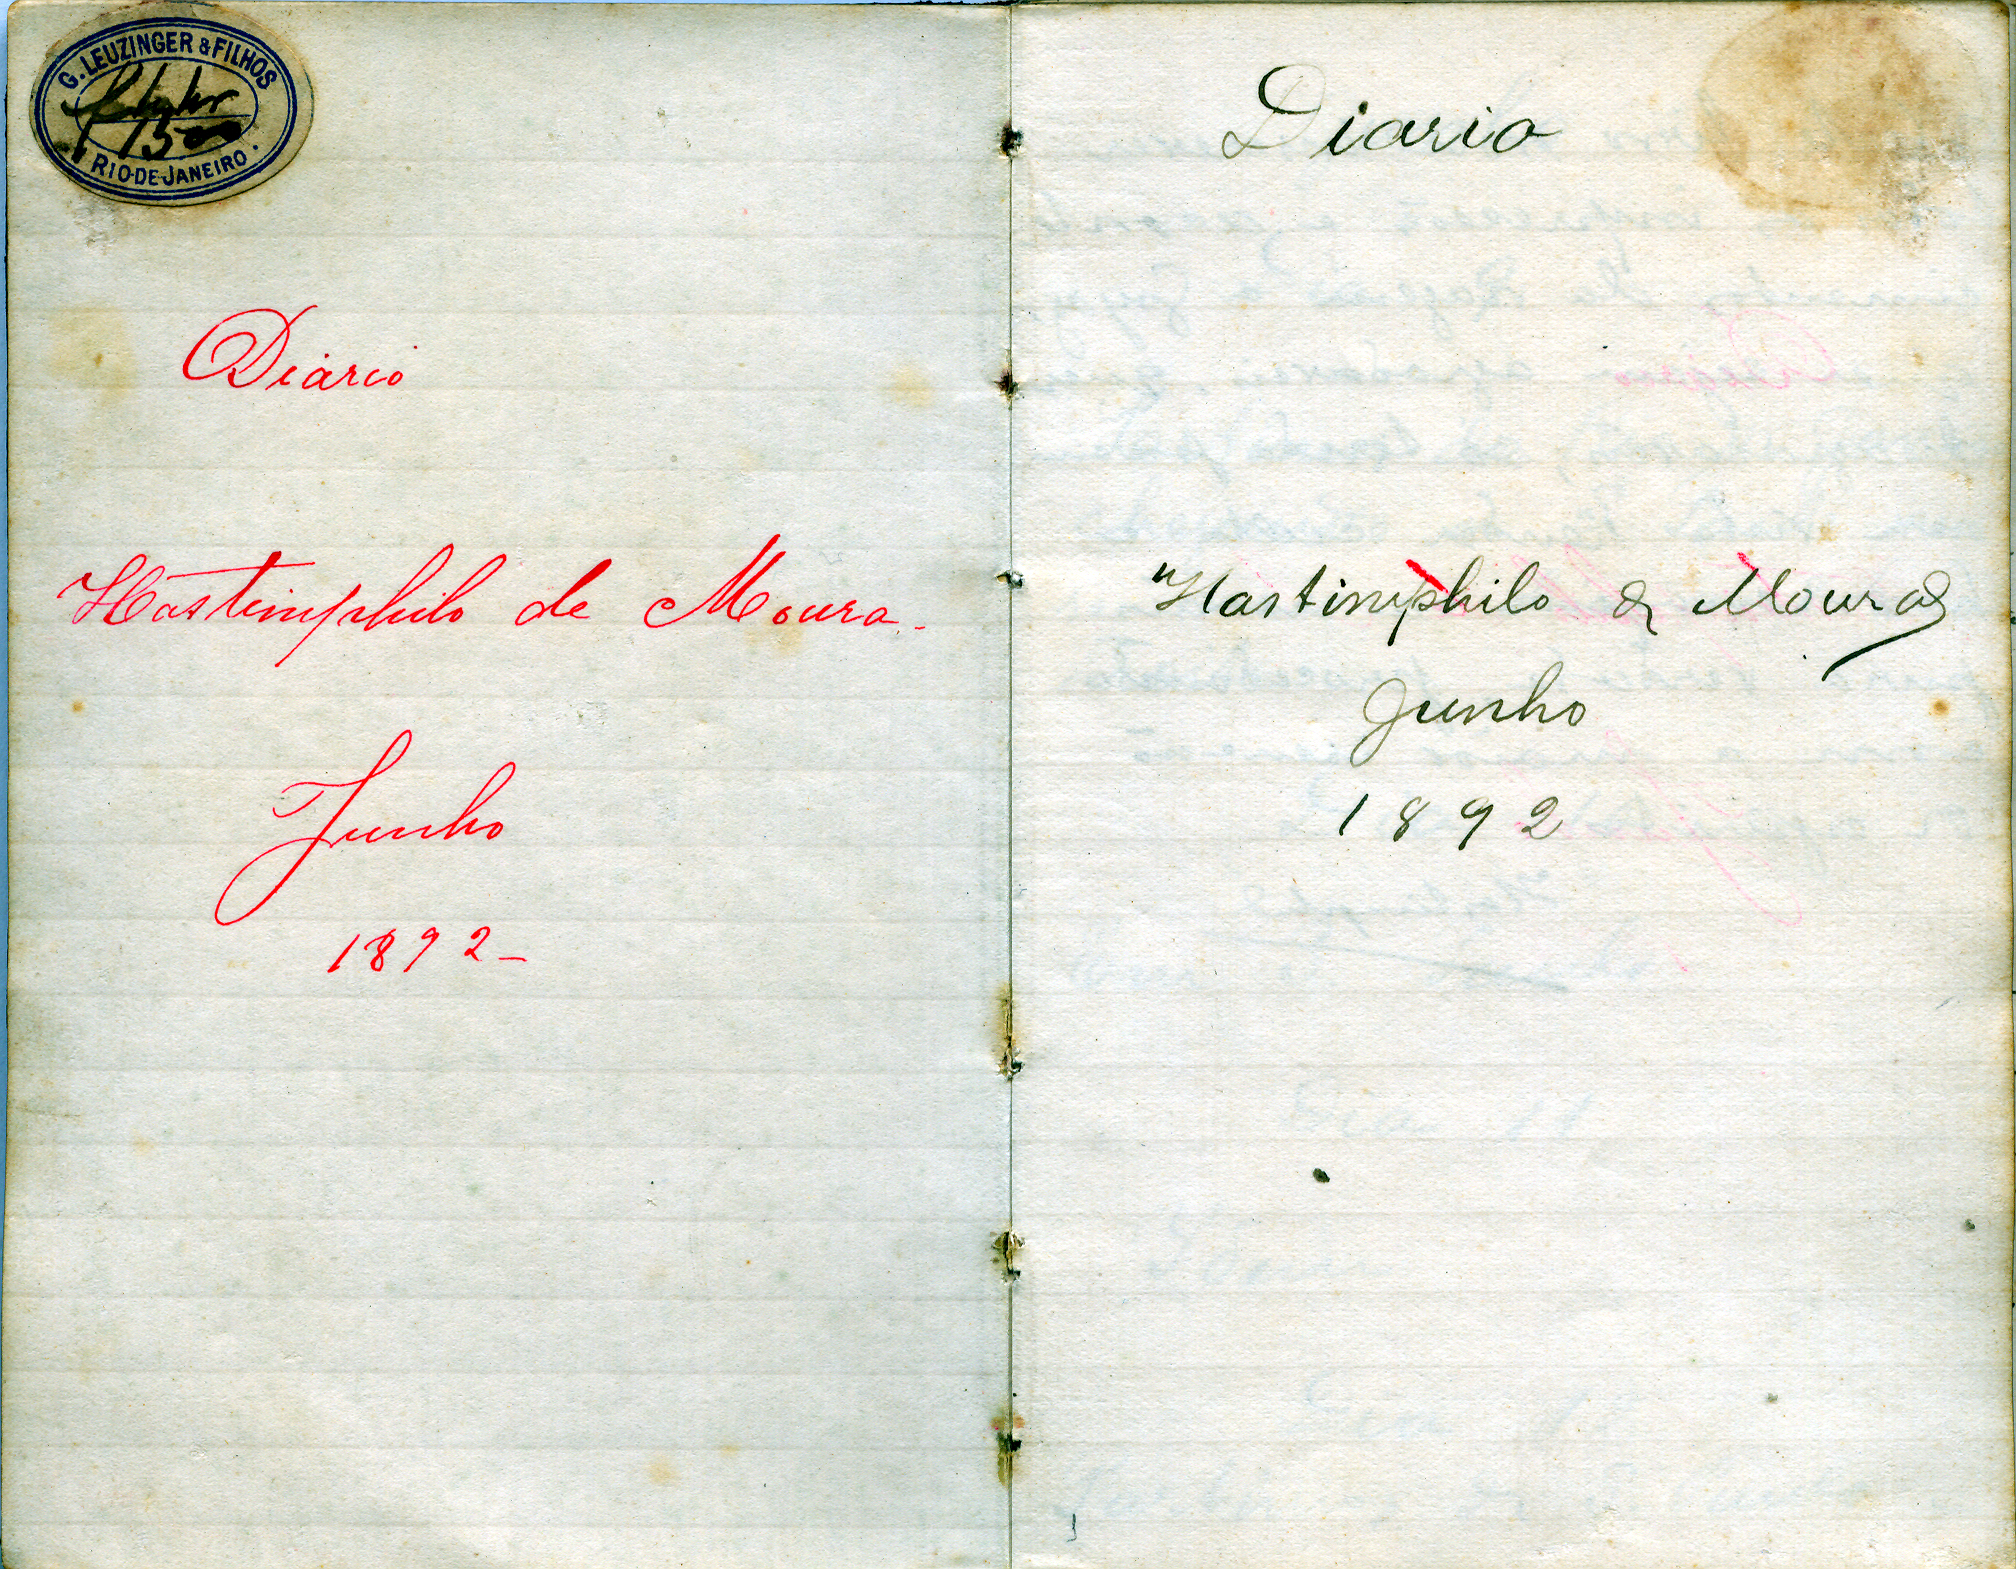 G. LEUZINGER & FILHOS
1500
RIO-DE-JANEIRO.
Diario
Hastimphilo de Moura.
Junho
1892-
Diario
Hastimphilo de Moura
Junho
1892